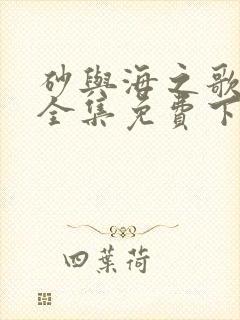 砂與海之歌
全集免費下
四葉荷